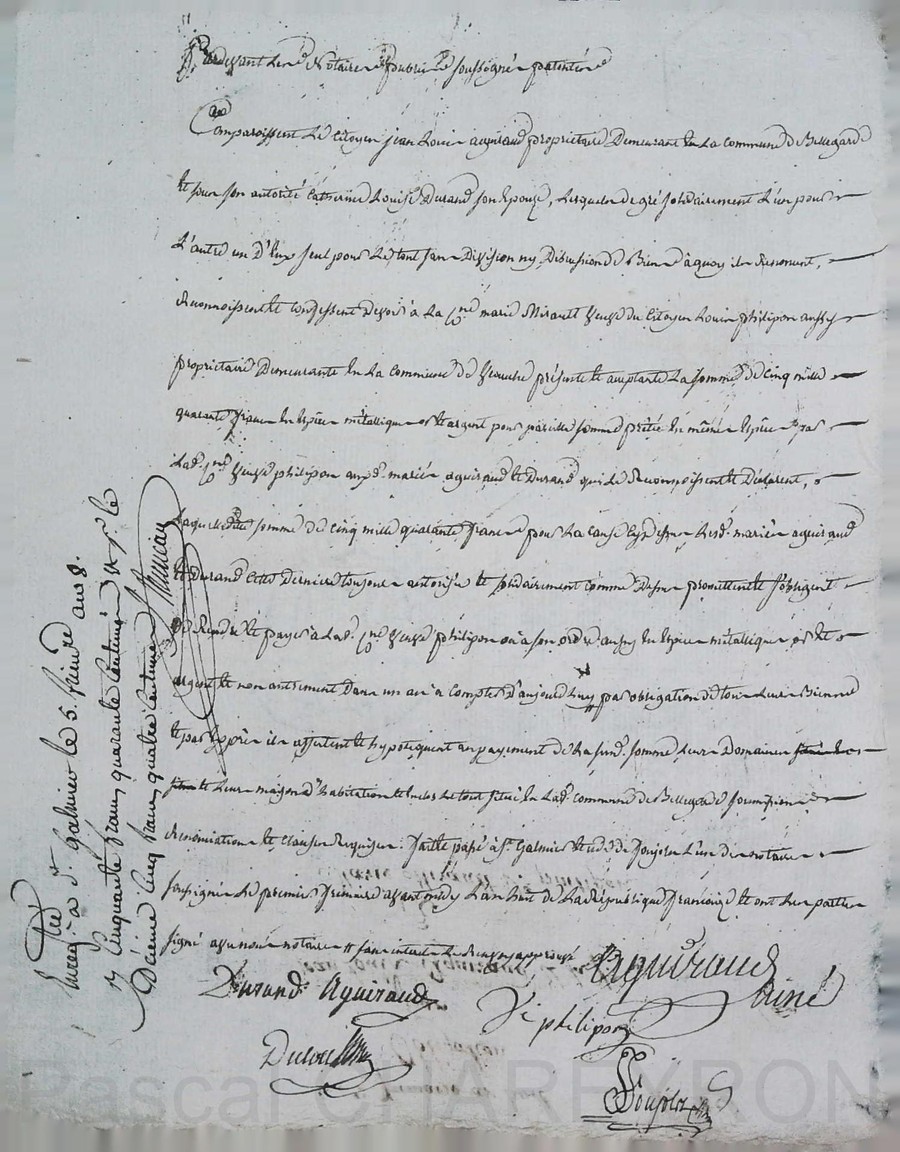 Pardevant Les Notaires publics soussignés patentés
Comparoissent Le Citoyen jean Louis aguiraud propriétaire Demeurant En La Commune de Bellegarde
Et sous son autorité Catherine Louise Durand son Epouse, Lesquels de gré solidairement L'un pour
L'autre un D'Eux seul pour Le tout sans Division ny Discussion de Biens à quoy ils Renoncent,
Reconnoissent Et Confessent devoir à La C.ne marie Mirault Veuve du Citoyen Louis philipon aussy
propriétaire Demeurante En La Commune de présente Et acceptante La somme de Cinq mille
quarante francs En Espèces métalliques or Et argent pour pareille somme prêtée En mêmes Espèces par
Lad. C.ne Veuve philipon auxd. mariés aguiraud Et Durand qui Le Reconnoissent Et Déclarent,
Laquelle somme de Cinq mille quarante francs pour La Cause Cydessus Lesd. mariés aguiraud
Et Durand Cette Dernière toujours autorisée Et solidairement Comme Dessus promettent Et s'obligent
de Rendre Et payer à Lad. C.ne Veuve philipon ou à son ordre aussy En Espèces métalliques or Et
argent Et non autrement Dans un an à Compter D'aujourd'huy par obligation de tous Leurs Biens
Et par Exprès ils affectent Et hypotèquent au payement de La susd. somme Leurs Domaines
Et Leur maison D'habitation Le tout situé En Lad. Commune de Bellegarde soumissions
Renonciations Et Clauses Requises. fait Et passé à St Galmier Etude de Poujolz L'un des notaires
soussignés Le premier frimaire L'an huit de La République française Et ont Les parties
signé avec nous notaires
Durand Aguiraud
Aguiraud ainé
Ve philipon
Poujolz
Enreg.tré à St Galmier le 5 frimre an 8.
Cinquante francs quarante Centimes
Décime Cinq francs quatre Centimes
Pascal CHAREYRON